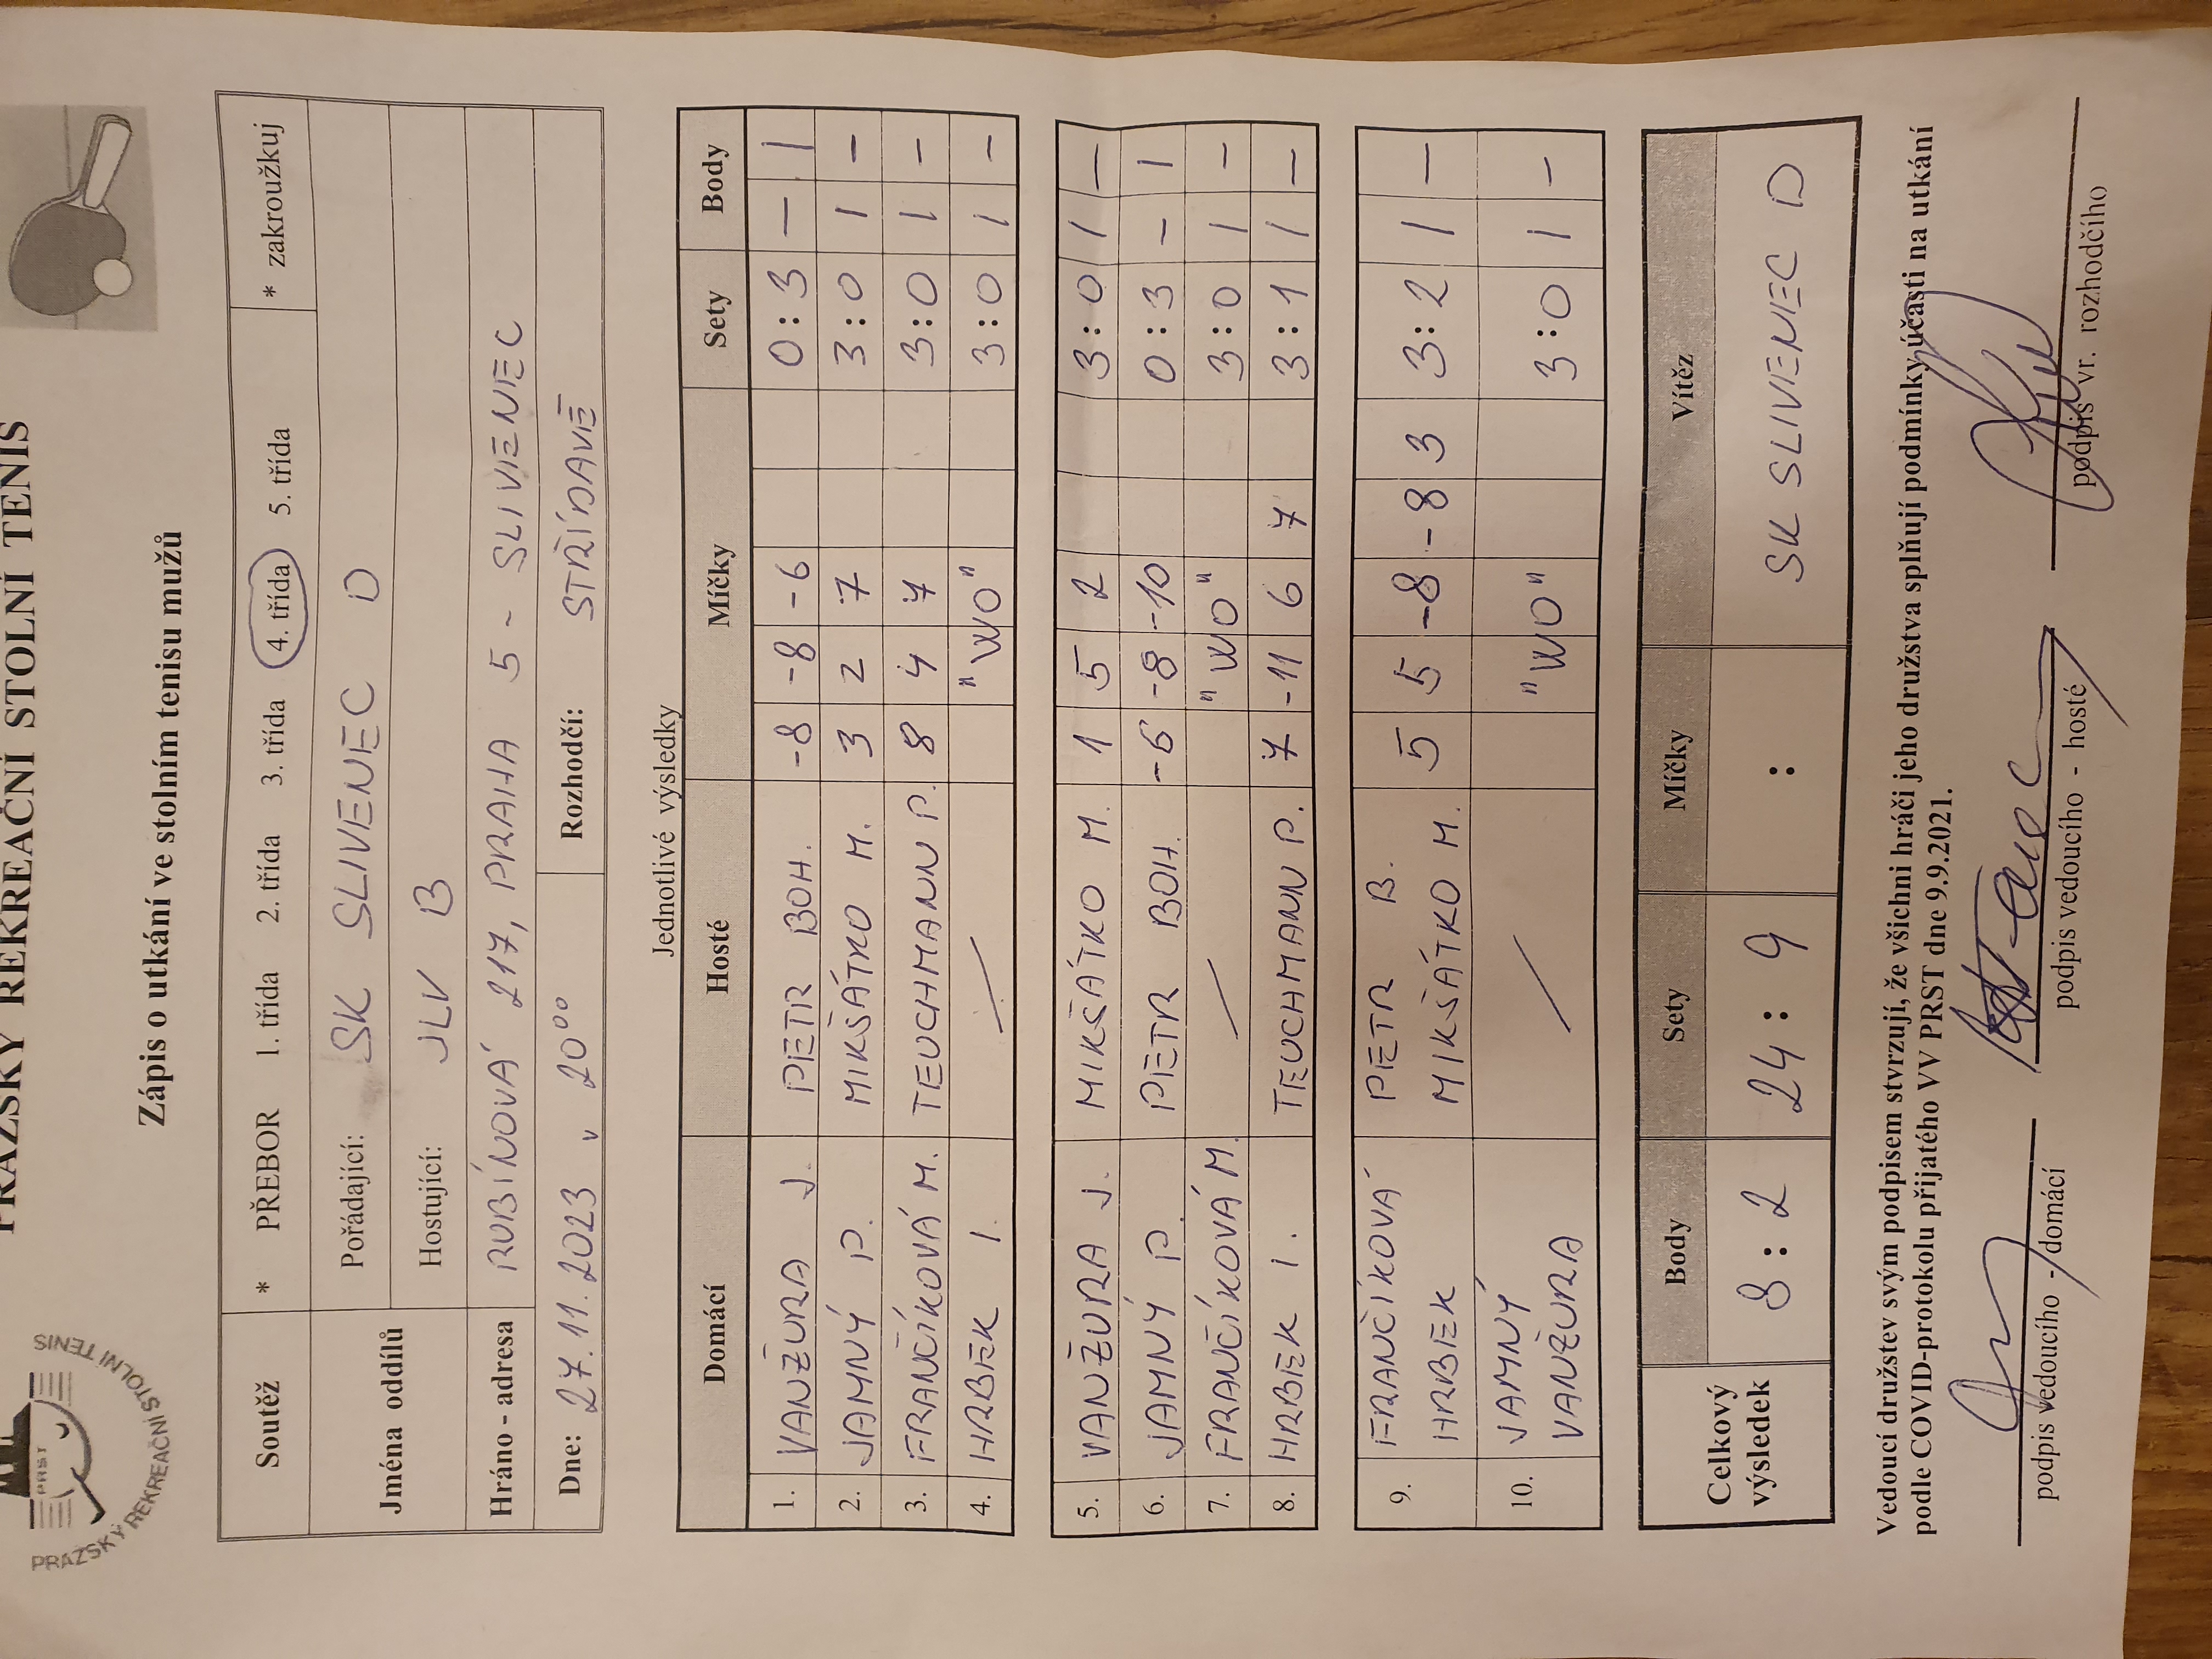 PRAŽSKÝ REKREAČNÍ STOLNÍ TENIS
PRST
PRAŽSKÝ REKREAČNÍ STOLNÍ TENIS
Zápis o utkání ve stolním tenisu mužů
Soutěž * PŘEBOR 1. třída 2. třída 3. třída 4. třída 5. třída * zakroužkuj
Jména oddílů Pořádající: SK SLIVENEC D
Hostující: JLV B
Hráno - adresa RUBÍNOVÁ 217, PRAHA 5 - SLIVENEC
Dne: 27.11.2023 v 20°° Rozhodčí: STŘÍDAVĚ
Jednotlivé výsledky
Domácí Hosté Míčky Sety Body
1. VANŽURA J. PETR BOH. -8 -8 -6 0 : 3 — 1
2. JAMNÝ P. MIKŠÁTKO M. 3 2 7 3 : 0 1 —
3. FRANČÍKOVÁ M. TEUCHMANN P. 8 4 7 3 : 0 1 —
4. HRBEK I. / "WO" 3 : 0 1 —
5. VANŽURA J. MIKŠÁTKO M. 1 5 2 3 : 0 1 —
6. JAMNÝ P. PETR BOH. -6 -8 -10 0 : 3 — 1
7. FRANČÍKOVÁ M. / "WO" 3 : 0 1 —
8. HRBEK I. TEUCHMANN P. 7 -11 6 7 3 : 1 1 —
9. FRANČÍKOVÁ PETR B.
HRBEK MIKŠÁTKO M. 5 5 -8 -8 3 3 : 2 1 —
10. JAMNÝ
VANŽURA / "WO" 3 : 0 1 —
Celkový výsledek Body Sety Míčky Vítěz
8 : 2 24 : 9 : SK SLIVENEC D
Vedoucí družstev svým podpisem stvrzují, že všichni hráči jeho družstva splňují podmínky účasti na utkání
podle COVID-protokolu přijatého VV PRST dne 9.9.2021.
podpis vedoucího - domácí podpis vedoucího - hosté podpis vr. rozhodčího